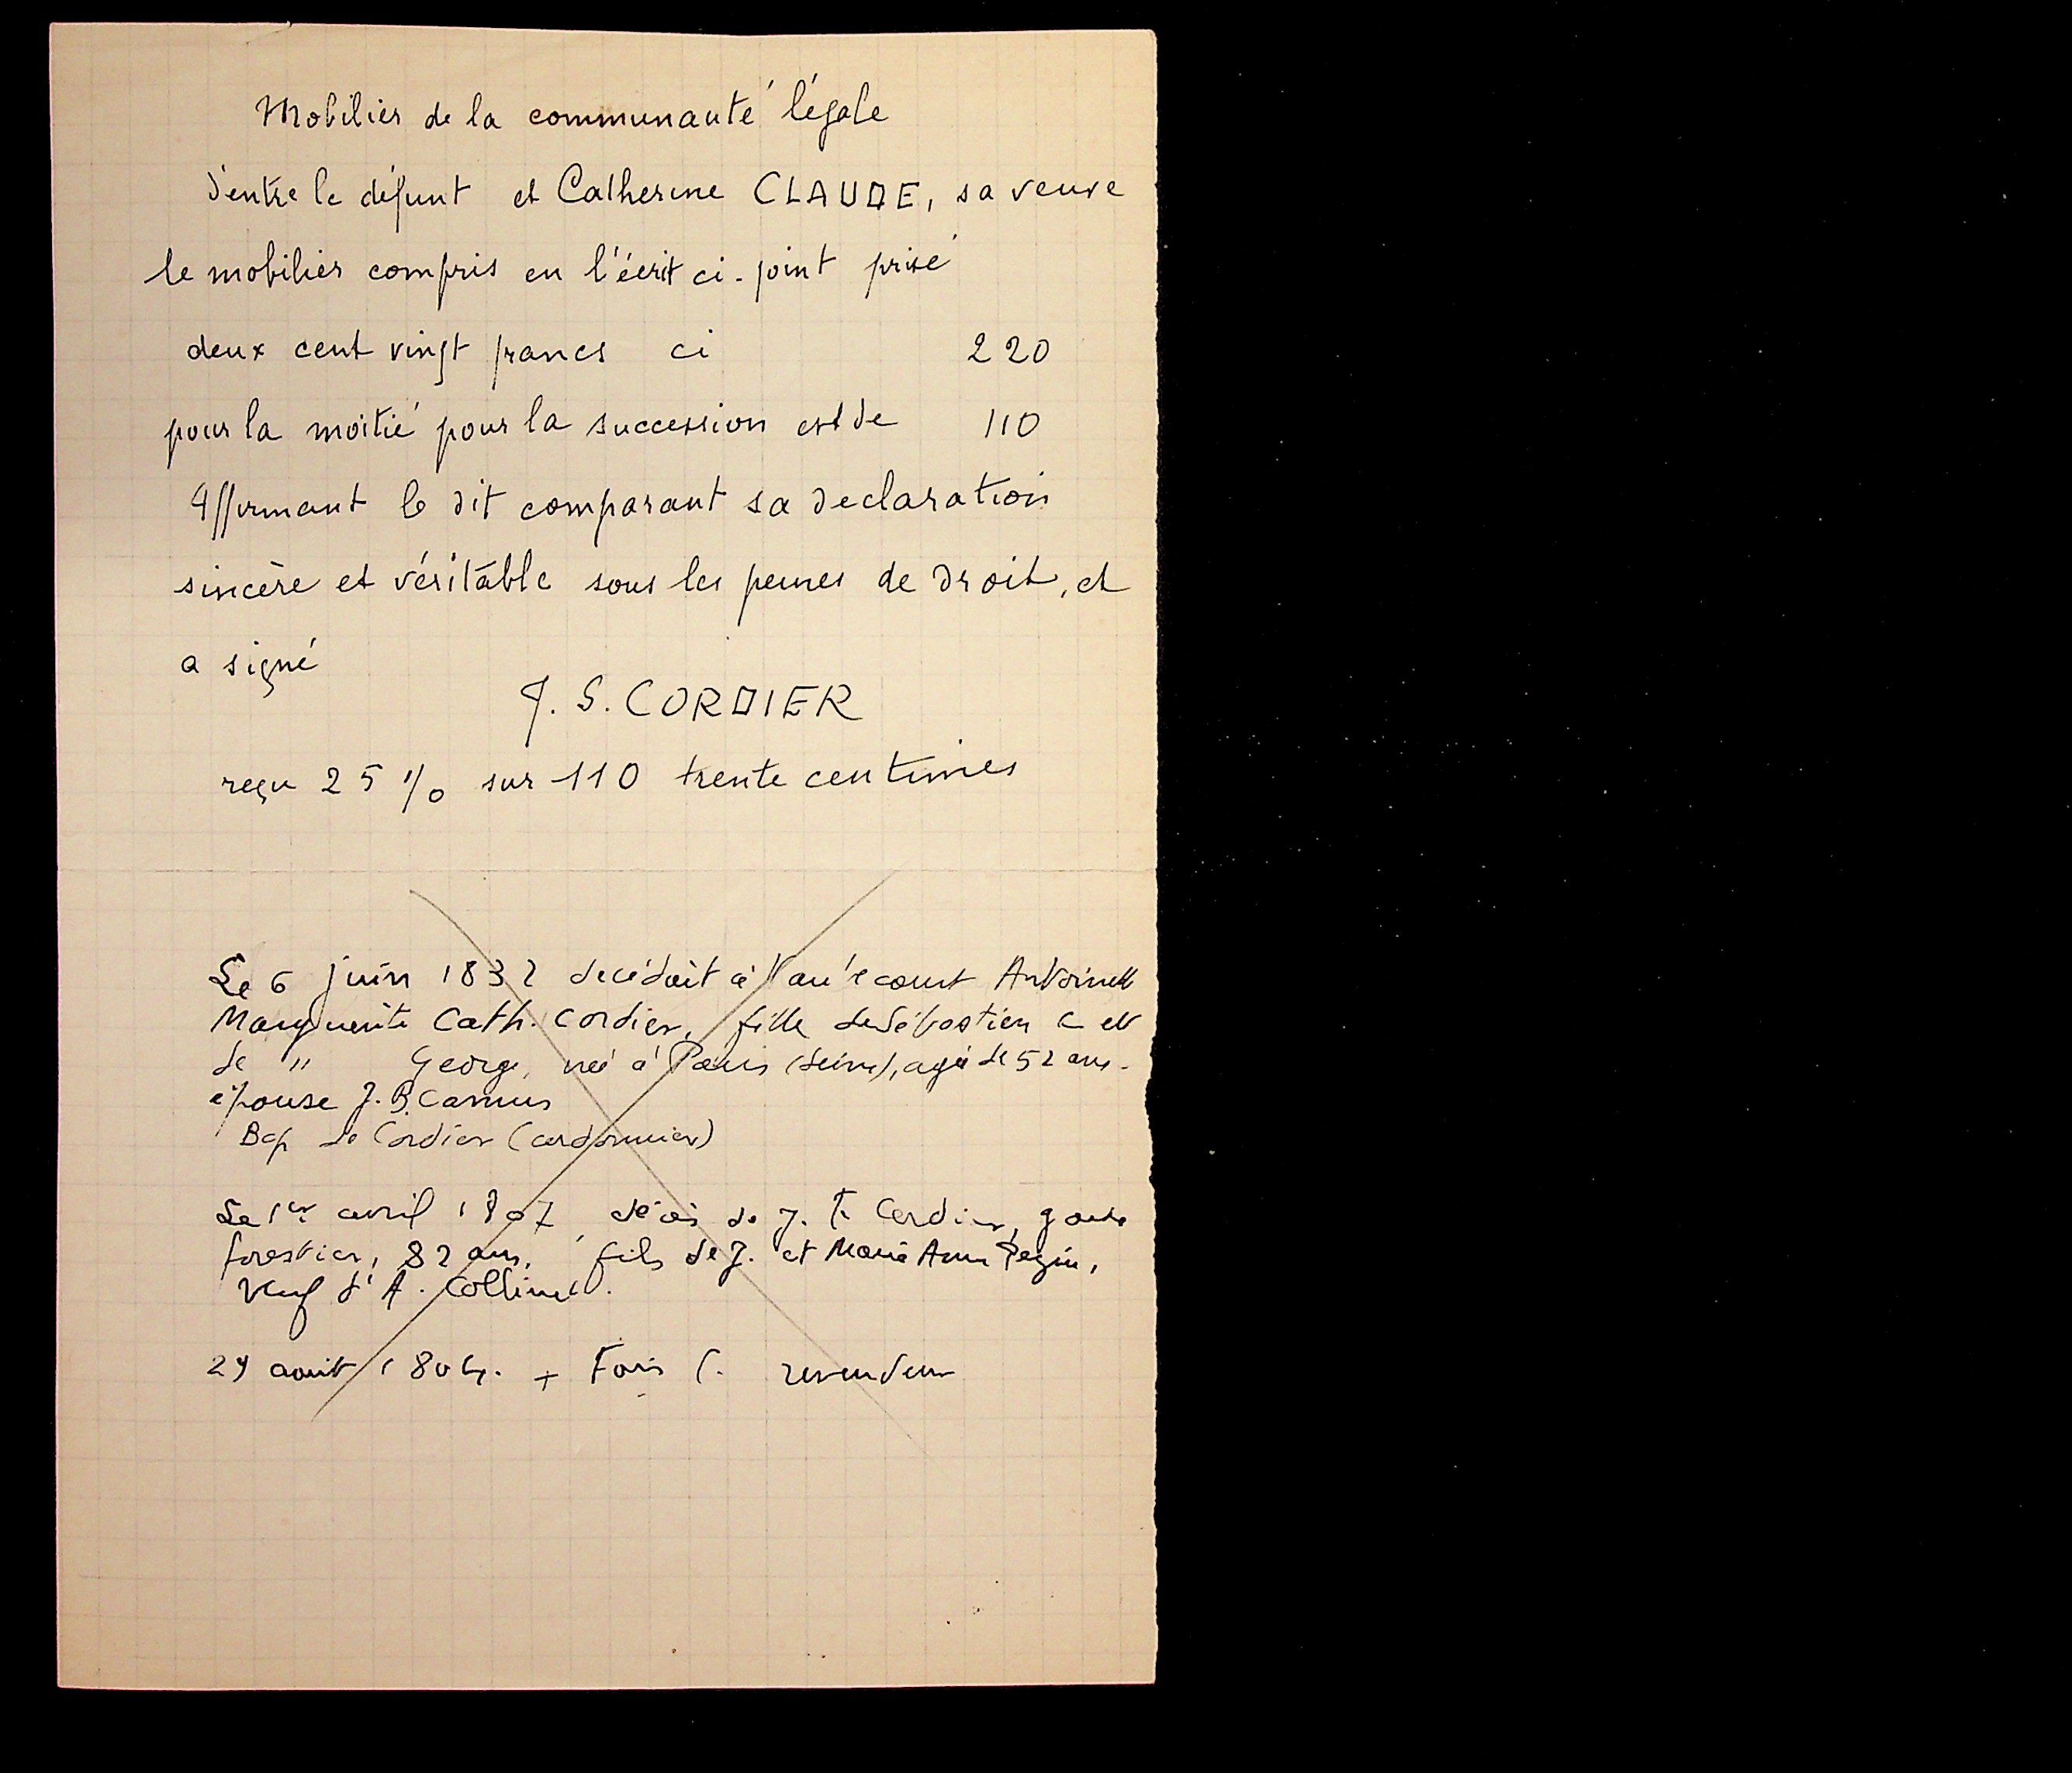 Mobilier de la communauté légale
d'entre le défunt et Catherine CLAUDE, sa veuve
le mobilier compris en l'écrit ci-joint prisé
deux cent vingt francs ci 220
pour la moitié pour la succession est de 110
Affirmant le dit comparant sa declaration
sincère et véritable sous les peines de droit, et
a signé
J. S. CORDIER
reçu 25 % sur 110 trente centimes
Le 6 juin 1832 décédait à Vau'ecourt Antoinett
Marguerite Cath. Cordier, fille de Sébastien C et
de " George, née à Paris (Seine), agée de 52 ans.
épouse J. B. Camus
Bap de Cordier (cordonnier)
Le 1er avril 1807 décès de J. F. Cordier, garde
forestier, 82 ans, fils de J. et Marie Anne
Veuf d'A. Collinet.
29 août 1804. + Fois C. revendeur